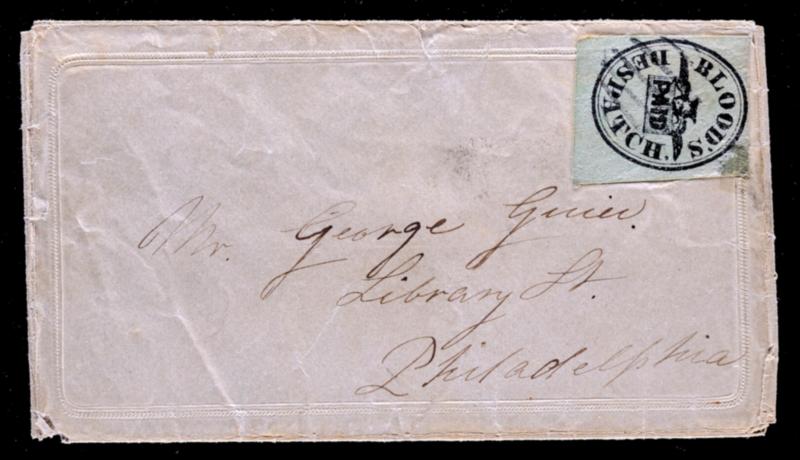 BLOOD'S
PAID
DESPATCH.
Mr. George Guier
Library St.
Philadelphia